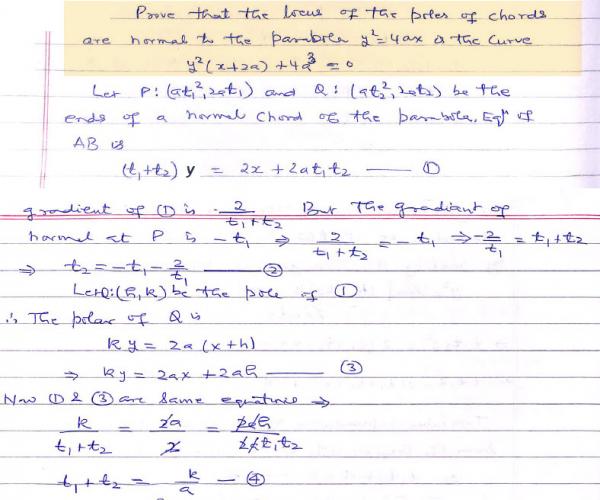 Prove that the locus of the poles of chords
are normal to the parabola y²=4ax is the curve
y²(x+2a)+4a³=0
Let P:(at₁²,2at₁) and Q:(at₂²,2at₂) be the
ends of a normal chord of the parabola, Eqⁿ of
AB is
(t₁+t₂) y = 2x+2at₁t₂ — ①
gradient of ① is 2/(t₁+t₂) But the gradient of
normal at P is -t₁ ⇒ 2/(t₁+t₂) = -t₁ ⇒ -2/t₁ = t₁+t₂
⇒ t₂=-t₁-2/t₁ — ②
Let Q:(h,k) be the pole of ①
∴ The polar of Q is
ky=2a(x+h)
⇒ ky=2ax+2ah — ③
Now ① & ③ are same equations ⇒
k/(t₁+t₂) = 2a/2 = 2ah/2at₁t₂
t₁+t₂ = k/a — ④